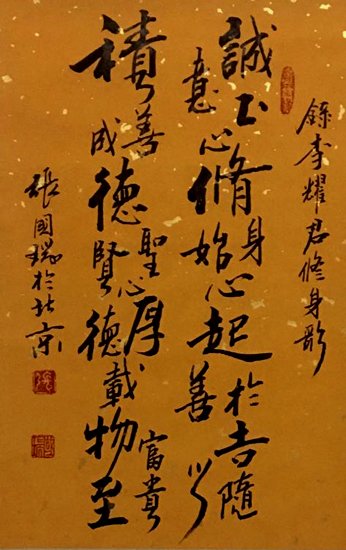 錄李耀君修身歌
誠意正心脩身始心起於善吉隨
積善成德聖賢心厚德載物富貴至
張國瑞於北京